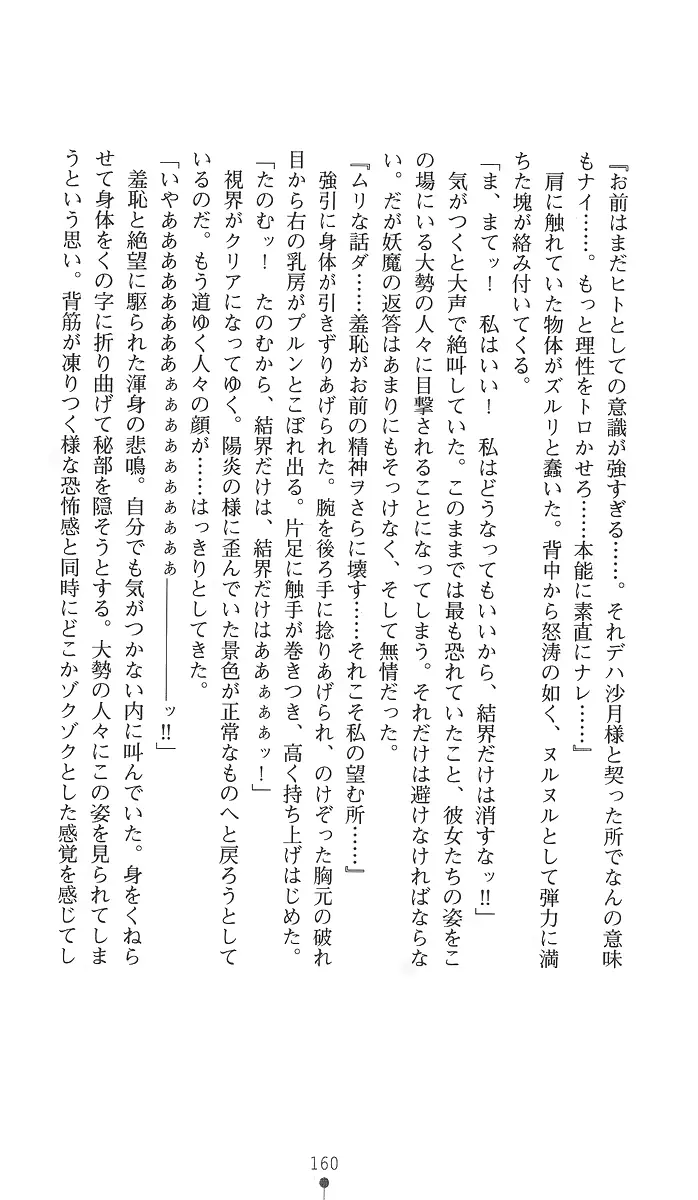 『お前はまだヒトとしての意識が強すぎる……。それデハ沙月様と契った所でなんの意味
もナイ……。もっと理性をトロかせろ……本能に素直にナレ……』
　肩に触れていた物体がズルリと蠢いた。背中から怒涛の如く、ヌルヌルとして弾力に満
ちた塊が絡み付いてくる。
「ま、まてッ！　私はいい！　私はどうなってもいいから、結界だけは消すなッ!!」
　気がつくと大声で絶叫していた。このままでは最も恐れていたこと、彼女たちの姿をこ
の場にいる大勢の人々に目撃されることになってしまう。それだけは避けなければならな
い。だが妖魔の返答はあまりにもそっけなく、そして無情だった。
『ムリな話ダ……羞恥がお前の精神ヲさらに壊す……それこそ私の望む所……』
　強引に身体が引きずりあげられた。腕を後ろ手に捻りあげられ、のけぞった胸元の破れ
目から右の乳房がプルンとこぼれ出る。片足に触手が巻きつき、高く持ち上げはじめた。
「たのむッ！　たのむから、結界だけは、結界だけはああぁぁぁッ！」
　視界がクリアになってゆく。陽炎の様に歪んでいた景色が正常なものへと戻ろうとして
いるのだ。もう道ゆく人々の顔が……はっきりとしてきた。
「いやああああああああぁぁぁぁぁぁぁぁぁ――――ッ!!」
　羞恥と絶望に駆られた渾身の悲鳴。自分でも気がつかない内に叫んでいた。身をくねら
せて身体をくの字に折り曲げて秘部を隠そうとする。大勢の人々にこの姿を見られてしま
うという思い。背筋が凍りつく様な恐怖感と同時にどこかゾクゾクとした感覚を感じてし
160